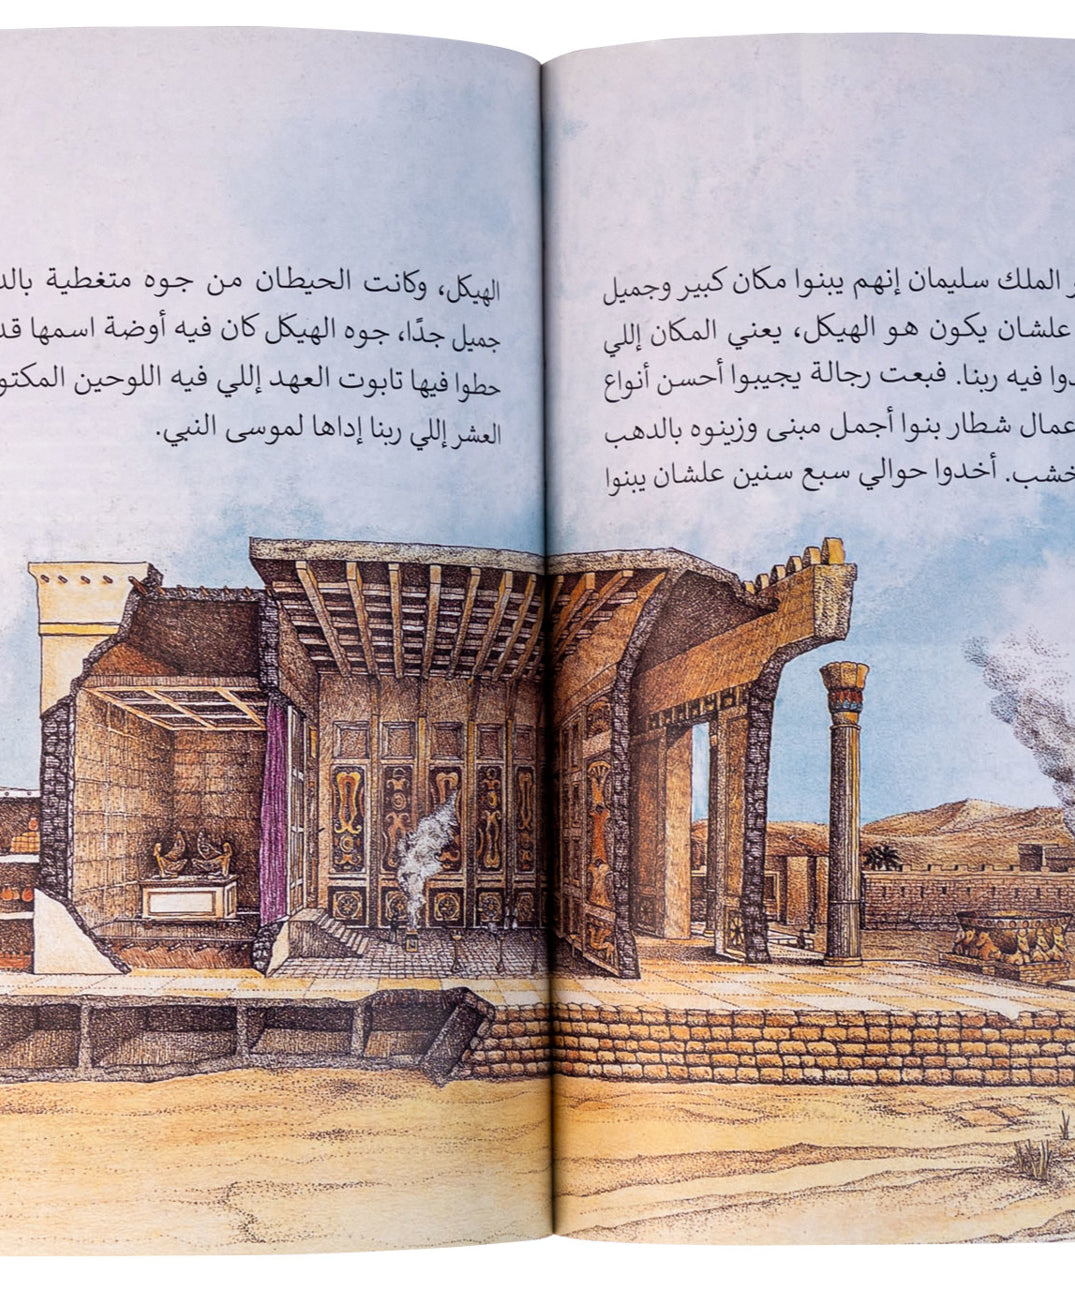 الملك سليمان إنهم يبنوا مكان كبير وجميل
علشان يكون هو الهيكل، يعني المكان إللي
فيه ربنا. فبعت رجالة يجيبوا أحسن أنواع
شطار بنوا أجمل مبنى وزينوه بالدهب
أخدوا حوالي سبع سنين علشان يبنوا
الهيكل، وكانت الحيطان من جوه متغطية
جميل جدًا، جوه الهيكل كان فيه أوضة اسمها
حطوا فيها تابوت العهد إللي فيه اللوحين
العشر إللي ربنا إداها لموسى النبي.